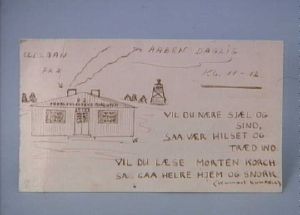 AABEN DAGLIG
KL. 11-12
VIL DU NÆRE SJÆL OG
SIND,
SAA VÆR HILSET OG
TRÆD IND.
VIL DU LÆSE MORTEN KORCH
SAA GAA HELRE HJEM OG SNORK